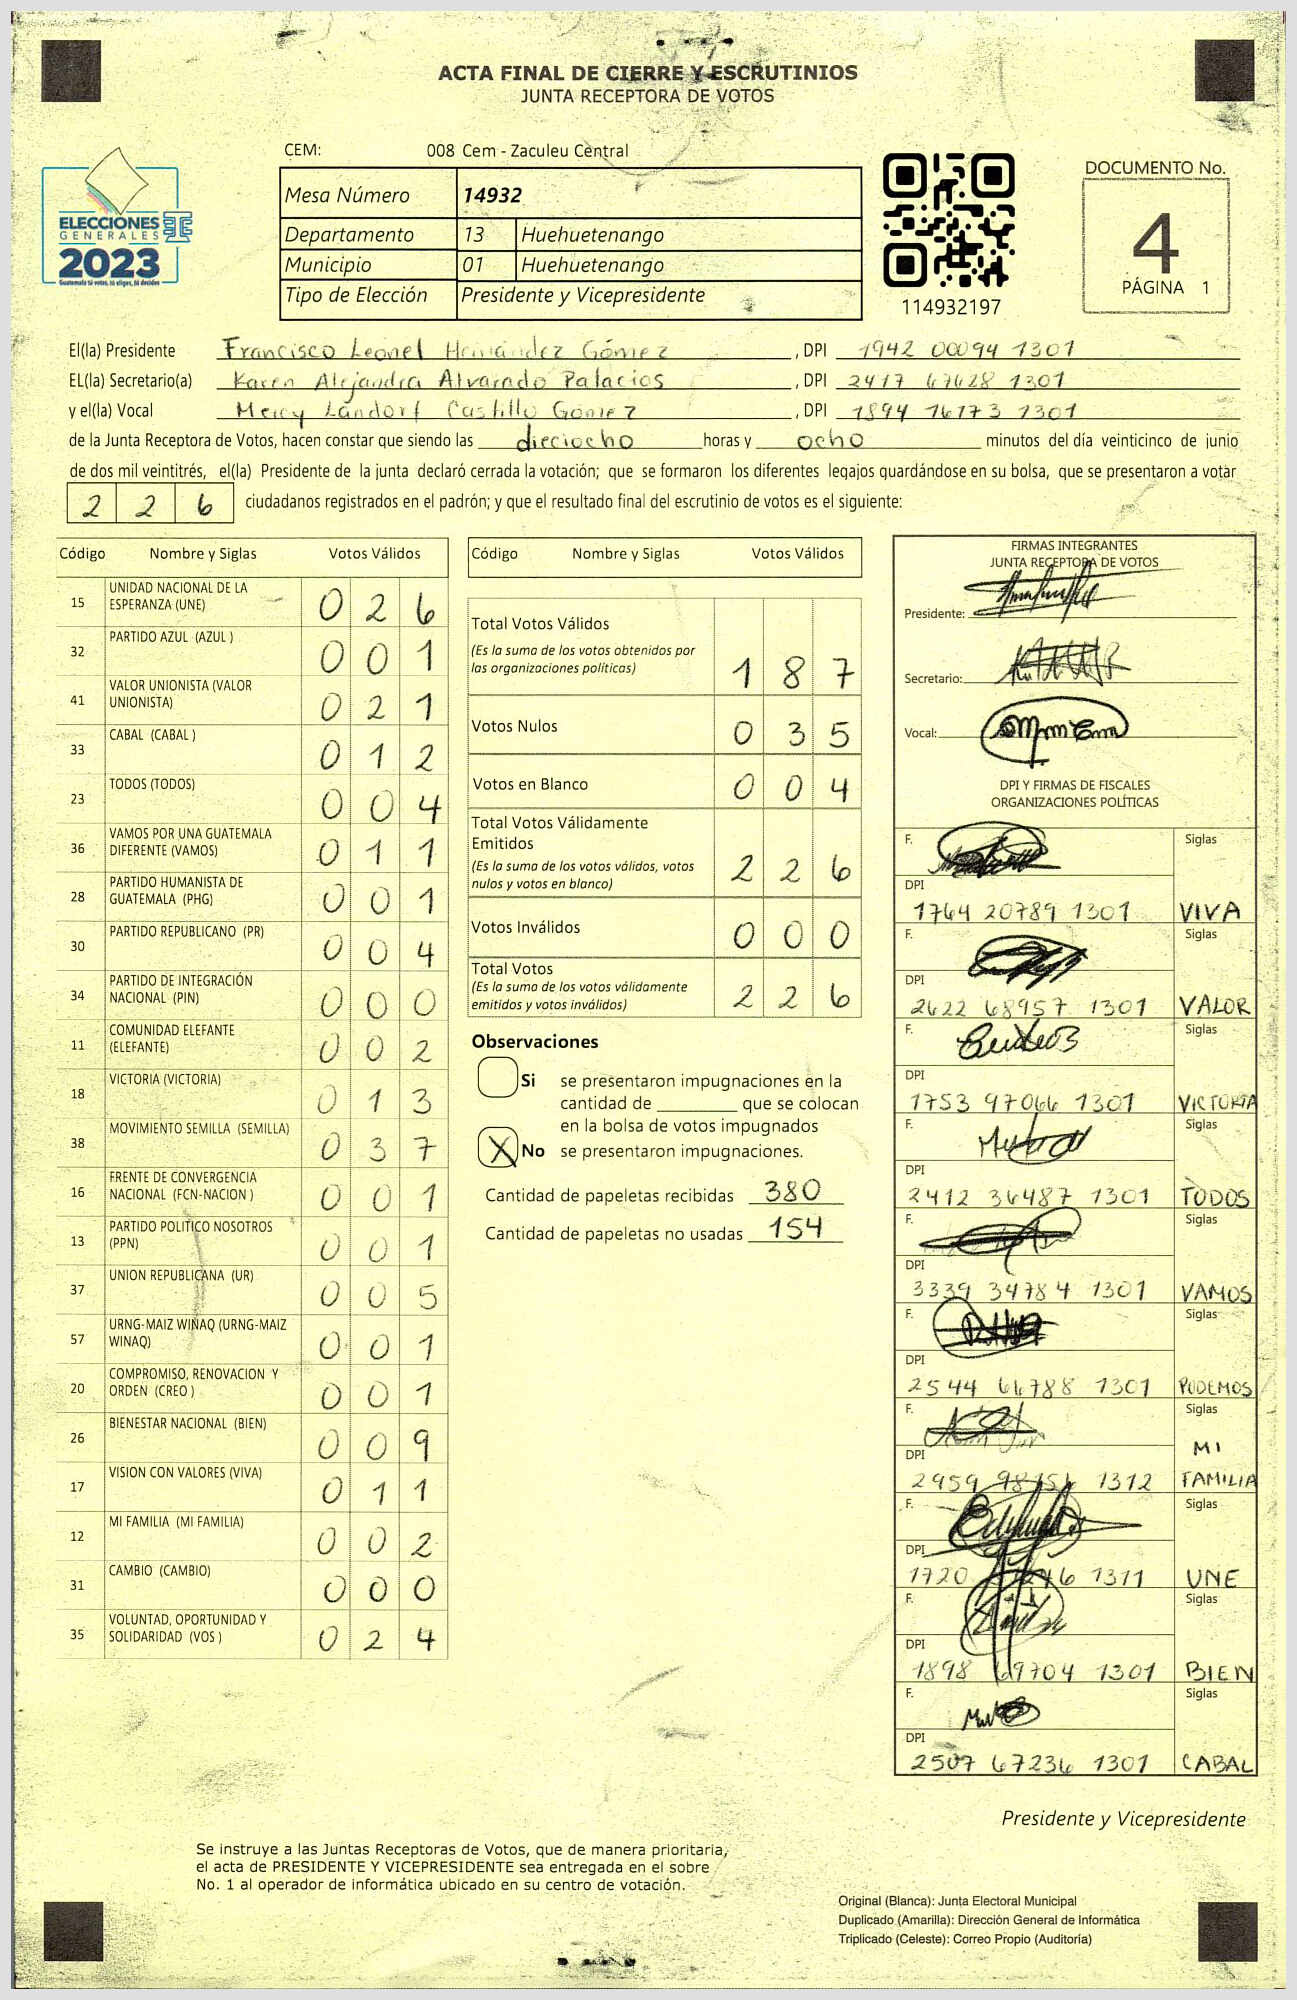 ACTA FINAL DE CIERRE Y ESCRUTINIOS
JUNTA RECEPTORA DE VOTOS
CEM: 008 Cem - Zaculeu Central
Mesa Número 14932
Departamento 13 Huehuetenango
Municipio 01 Huehuetenango
Tipo de Elección Presidente y Vicepresidente
ELECCIONES
GENERALES
2023
Guatemala tú votas, tú eliges, tú decides
114932197
DOCUMENTO No.
4
PÁGINA 1
El(la) Presidente Francisco Leonel Hernández Gómez , DPI 1942 00094 1301
EL(la) Secretario(a) Karen Alejandra Alvarado Palacios , DPI 2417 67628 1301
y el(la) Vocal Mercy Landorf Castillo Gómez , DPI 1894 16173 1301
de la Junta Receptora de Votos, hacen constar que siendo las dieciocho horas y ocho minutos del día veinticinco de junio
de dos mil veintitrés, el(la) Presidente de la junta declaró cerrada la votación; que se formaron los diferentes legajos quardándose en su bolsa, que se presentaron a votar
2 2 6 ciudadanos registrados en el padrón; y que el resultado final del escrutinio de votos es el siguiente:
Código Nombre y Siglas Votos Válidos
15 UNIDAD NACIONAL DE LA ESPERANZA (UNE) 0 2 6
32 PARTIDO AZUL (AZUL ) 0 0 1
41 VALOR UNIONISTA (VALOR UNIONISTA) 0 2 1
33 CABAL (CABAL ) 0 1 2
23 TODOS (TODOS) 0 0 4
36 VAMOS POR UNA GUATEMALA DIFERENTE (VAMOS) 0 1 1
28 PARTIDO HUMANISTA DE GUATEMALA (PHG) 0 0 1
30 PARTIDO REPUBLICANO (PR) 0 0 4
34 PARTIDO DE INTEGRACIÓN NACIONAL (PIN) 0 0 0
11 COMUNIDAD ELEFANTE (ELEFANTE) 0 0 2
18 VICTORIA (VICTORIA) 0 1 3
38 MOVIMIENTO SEMILLA (SEMILLA) 0 3 7
16 FRENTE DE CONVERGENCIA NACIONAL (FCN-NACION ) 0 0 1
13 PARTIDO POLITICO NOSOTROS (PPN) 0 0 1
37 UNION REPUBLICANA (UR) 0 0 5
57 URNG-MAIZ WINAQ (URNG-MAIZ WINAQ) 0 0 1
20 COMPROMISO, RENOVACION Y ORDEN (CREO ) 0 0 1
26 BIENESTAR NACIONAL (BIEN) 0 0 9
17 VISION CON VALORES (VIVA) 0 1 1
12 MI FAMILIA (MI FAMILIA) 0 0 2
31 CAMBIO (CAMBIO) 0 0 0
35 VOLUNTAD, OPORTUNIDAD Y SOLIDARIDAD (VOS ) 0 2 4
Código Nombre y Siglas Votos Válidos
Total Votos Válidos
(Es la suma de los votos obtenidos por
las organizaciones políticas) 1 8 7
Votos Nulos 0 3 5
Votos en Blanco 0 0 4
Total Votos Válidamente
Emitidos
(Es la suma de los votos válidos, votos
nulos y votos en blanco) 2 2 6
Votos Inválidos 0 0 0
Total Votos
(Es la suma de los votos válidamente
emitidos y votos inválidos) 2 2 6
Observaciones
Si se presentaron impugnaciones en la
cantidad de ________ que se colocan
en la bolsa de votos impugnados
X No se presentaron impugnaciones.
Cantidad de papeletas recibidas 380
Cantidad de papeletas no usadas 154
FIRMAS INTEGRANTES
JUNTA RECEPTORA DE VOTOS
Presidente:
Secretario:
Vocal:
DPI Y FIRMAS DE FISCALES
ORGANIZACIONES POLÍTICAS
F. Siglas
DPI
1764 20789 1301 VIVA
F. Siglas
DPI
2622 68957 1301 VALOR
F. Siglas
DPI
1753 97066 1301 VICTORIA
F. Siglas
DPI
2412 36487 1301 TODOS
F. Siglas
DPI
3339 34784 1301 VAMOS
F. Siglas
DPI
2544 66788 1301 PODEMOS
F. Siglas
DPI MI
2959 1312 FAMILIA
F. Siglas
DPI
1720 1311 UNE
F. Siglas
DPI
1898 69704 1301 BIEN
F. Siglas
DPI
2507 67236 1301 CABAL
Presidente y Vicepresidente
Se instruye a las Juntas Receptoras de Votos, que de manera prioritaria,
el acta de PRESIDENTE Y VICEPRESIDENTE sea entregada en el sobre
No. 1 al operador de informática ubicado en su centro de votación.
Original (Blanca): Junta Electoral Municipal
Duplicado (Amarilla): Dirección General de Informática
Triplicado (Celeste): Correo Propio (Auditoría)